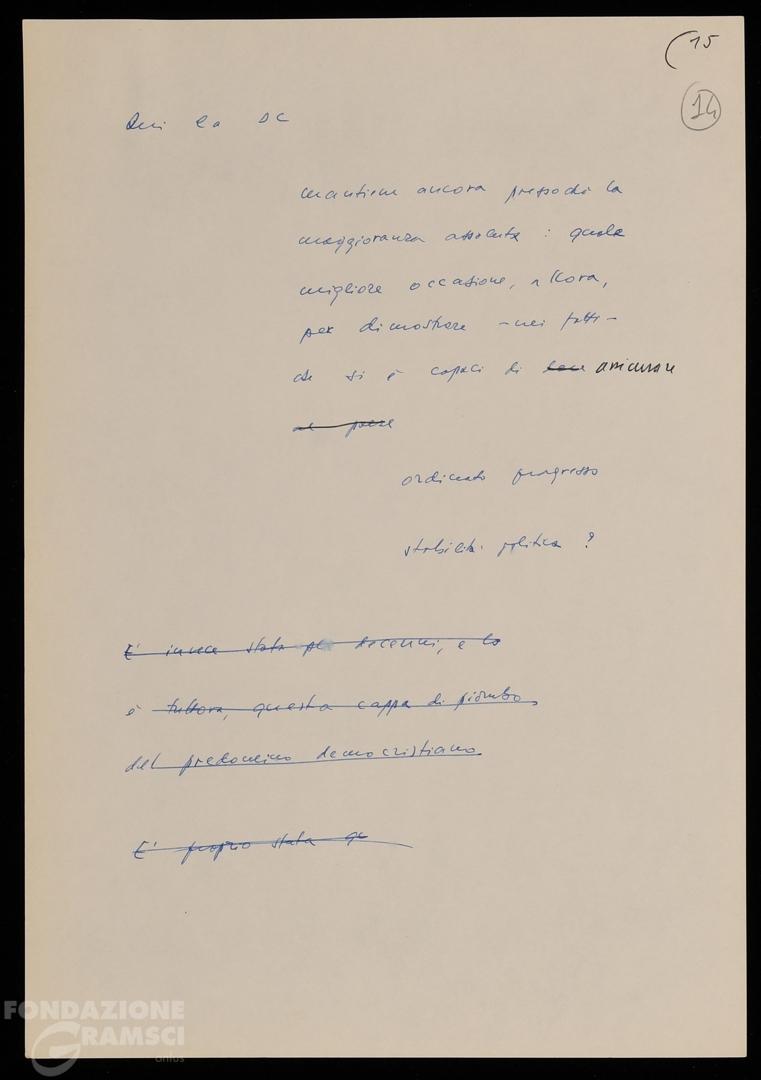 (15
14
Qui la DC
mantiene ancora pressoché la
maggioranza assoluta : quale
migliore occasione, allora,
per dimostrare - nei fatti -
che si è capaci di assicurare
al paese
ordinato progresso
stabilità politica ?
È invece stata per decenni, e lo
è tuttora, questa cappa di piombo
del predominio democristiano
E' proprio stata qu
FONDAZIONE
GRAMSCI
onlus